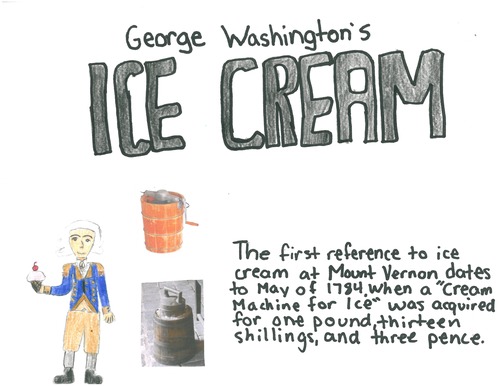 George Washington's
ICE CREAM
The first reference to ice
cream at Mount Vernon dates
to May of 1784, when a "Cream
Machine for Ice" was acquired
for one pound, thirteen
shillings, and three pence.